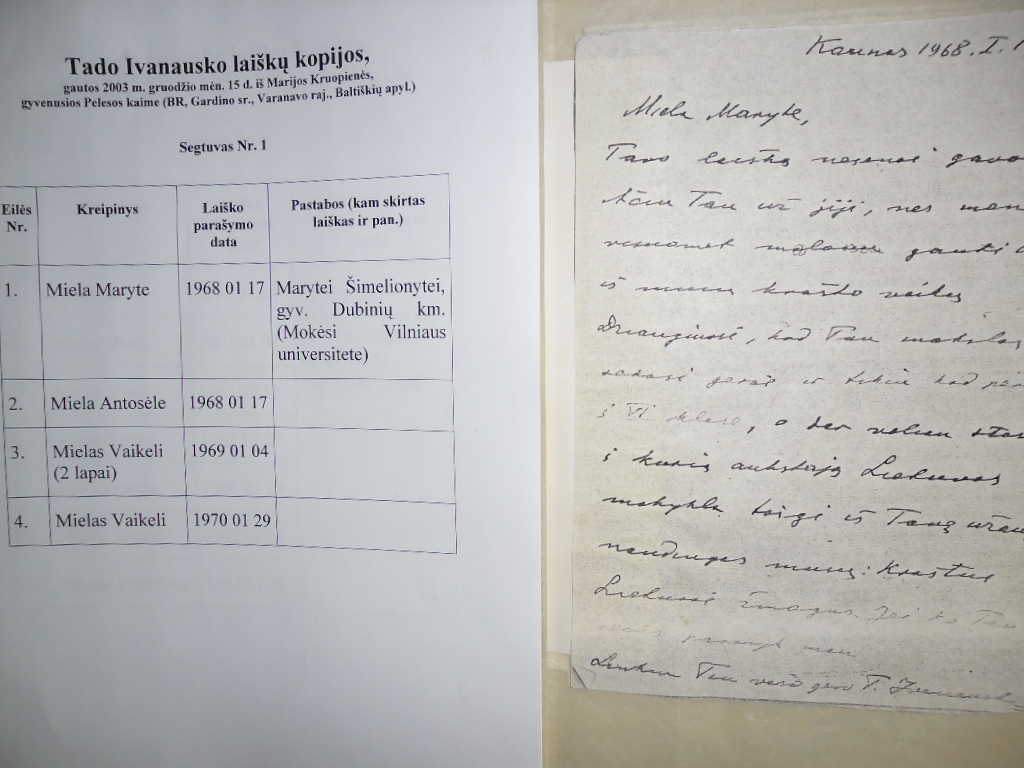 Tado Ivanausko laiškų kopijos,
gautos 2003 m. gruodžio mėn. 15 d. iš Marijos Kruopienės,
gyvenusios Pelesos kaime (BR, Gardino sr., Varanavo raj., Baltiškių apyl.)
Segtuvas Nr. 1
Eilės Nr. Kreipinys Laiško parašymo data Pastabos (kam skirtas laiškas ir pan.)
1. Miela Maryte 1968 01 17 Marytei Šimelionytei,
gyv. Dubinių km.
(Mokėsi Vilniaus
universitete)
2. Miela Antosėle 1968 01 17
3. Mielas Vaikeli 1969 01 04
(2 lapai)
4. Mielas Vaikeli 1970 01 29
Kaunas 1968. I. 1
Miela Maryte,
Tavo laišką neseniai gavo
Ačiu Tau už jįjį, nes man
visuomet malonu gauti
iš mumų krašto vaikų
Džiauginosi, kad Tau mokslas
sekasi gerai ir tikiu kad
į VI klasę, o dar veliau
į kurią aukštąją Lietuvos
mokyklą taigi iš Tavę
naudingas mumų: Krastui
Lietuvai žmogus. Jei ko Tau
parašyk man
Linkiu Tau viso gero T. Ivanausk